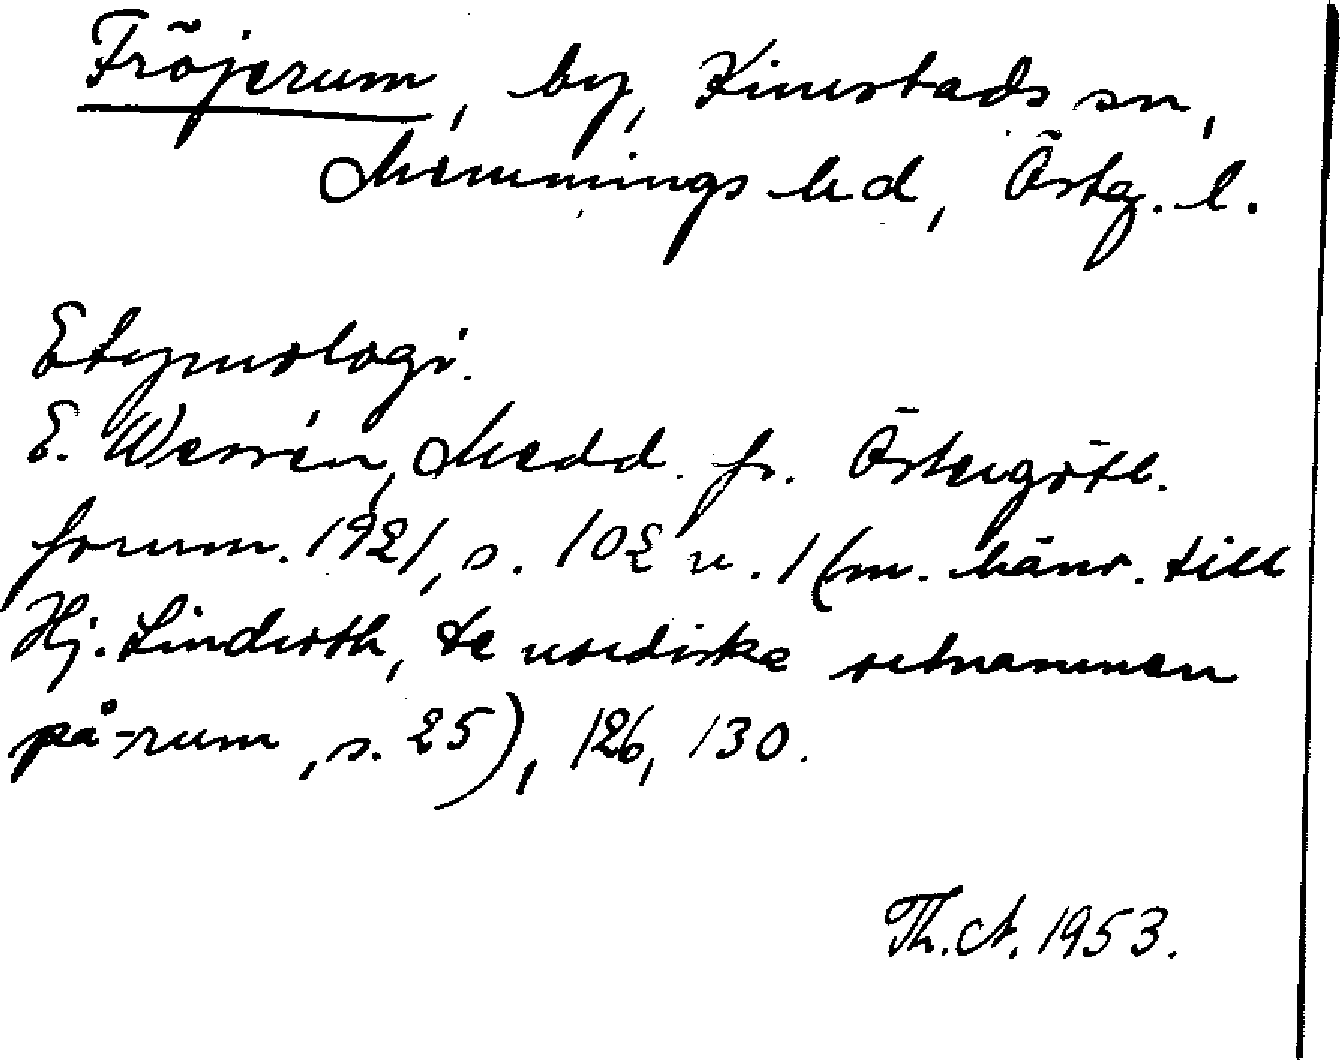 Fröjerum, by, Kimstads sn,
Memmings hd, Östg. l.
Etymologi.
E. Wessén, Medd. fr. Östergötl.
fornm. 1921, s. 102 n. 1 (m. hänv. till
Hj. Lindroth, De nordiske ortnamnen
på -rum, s. 25), 126, 130.
Th. A. 1953.